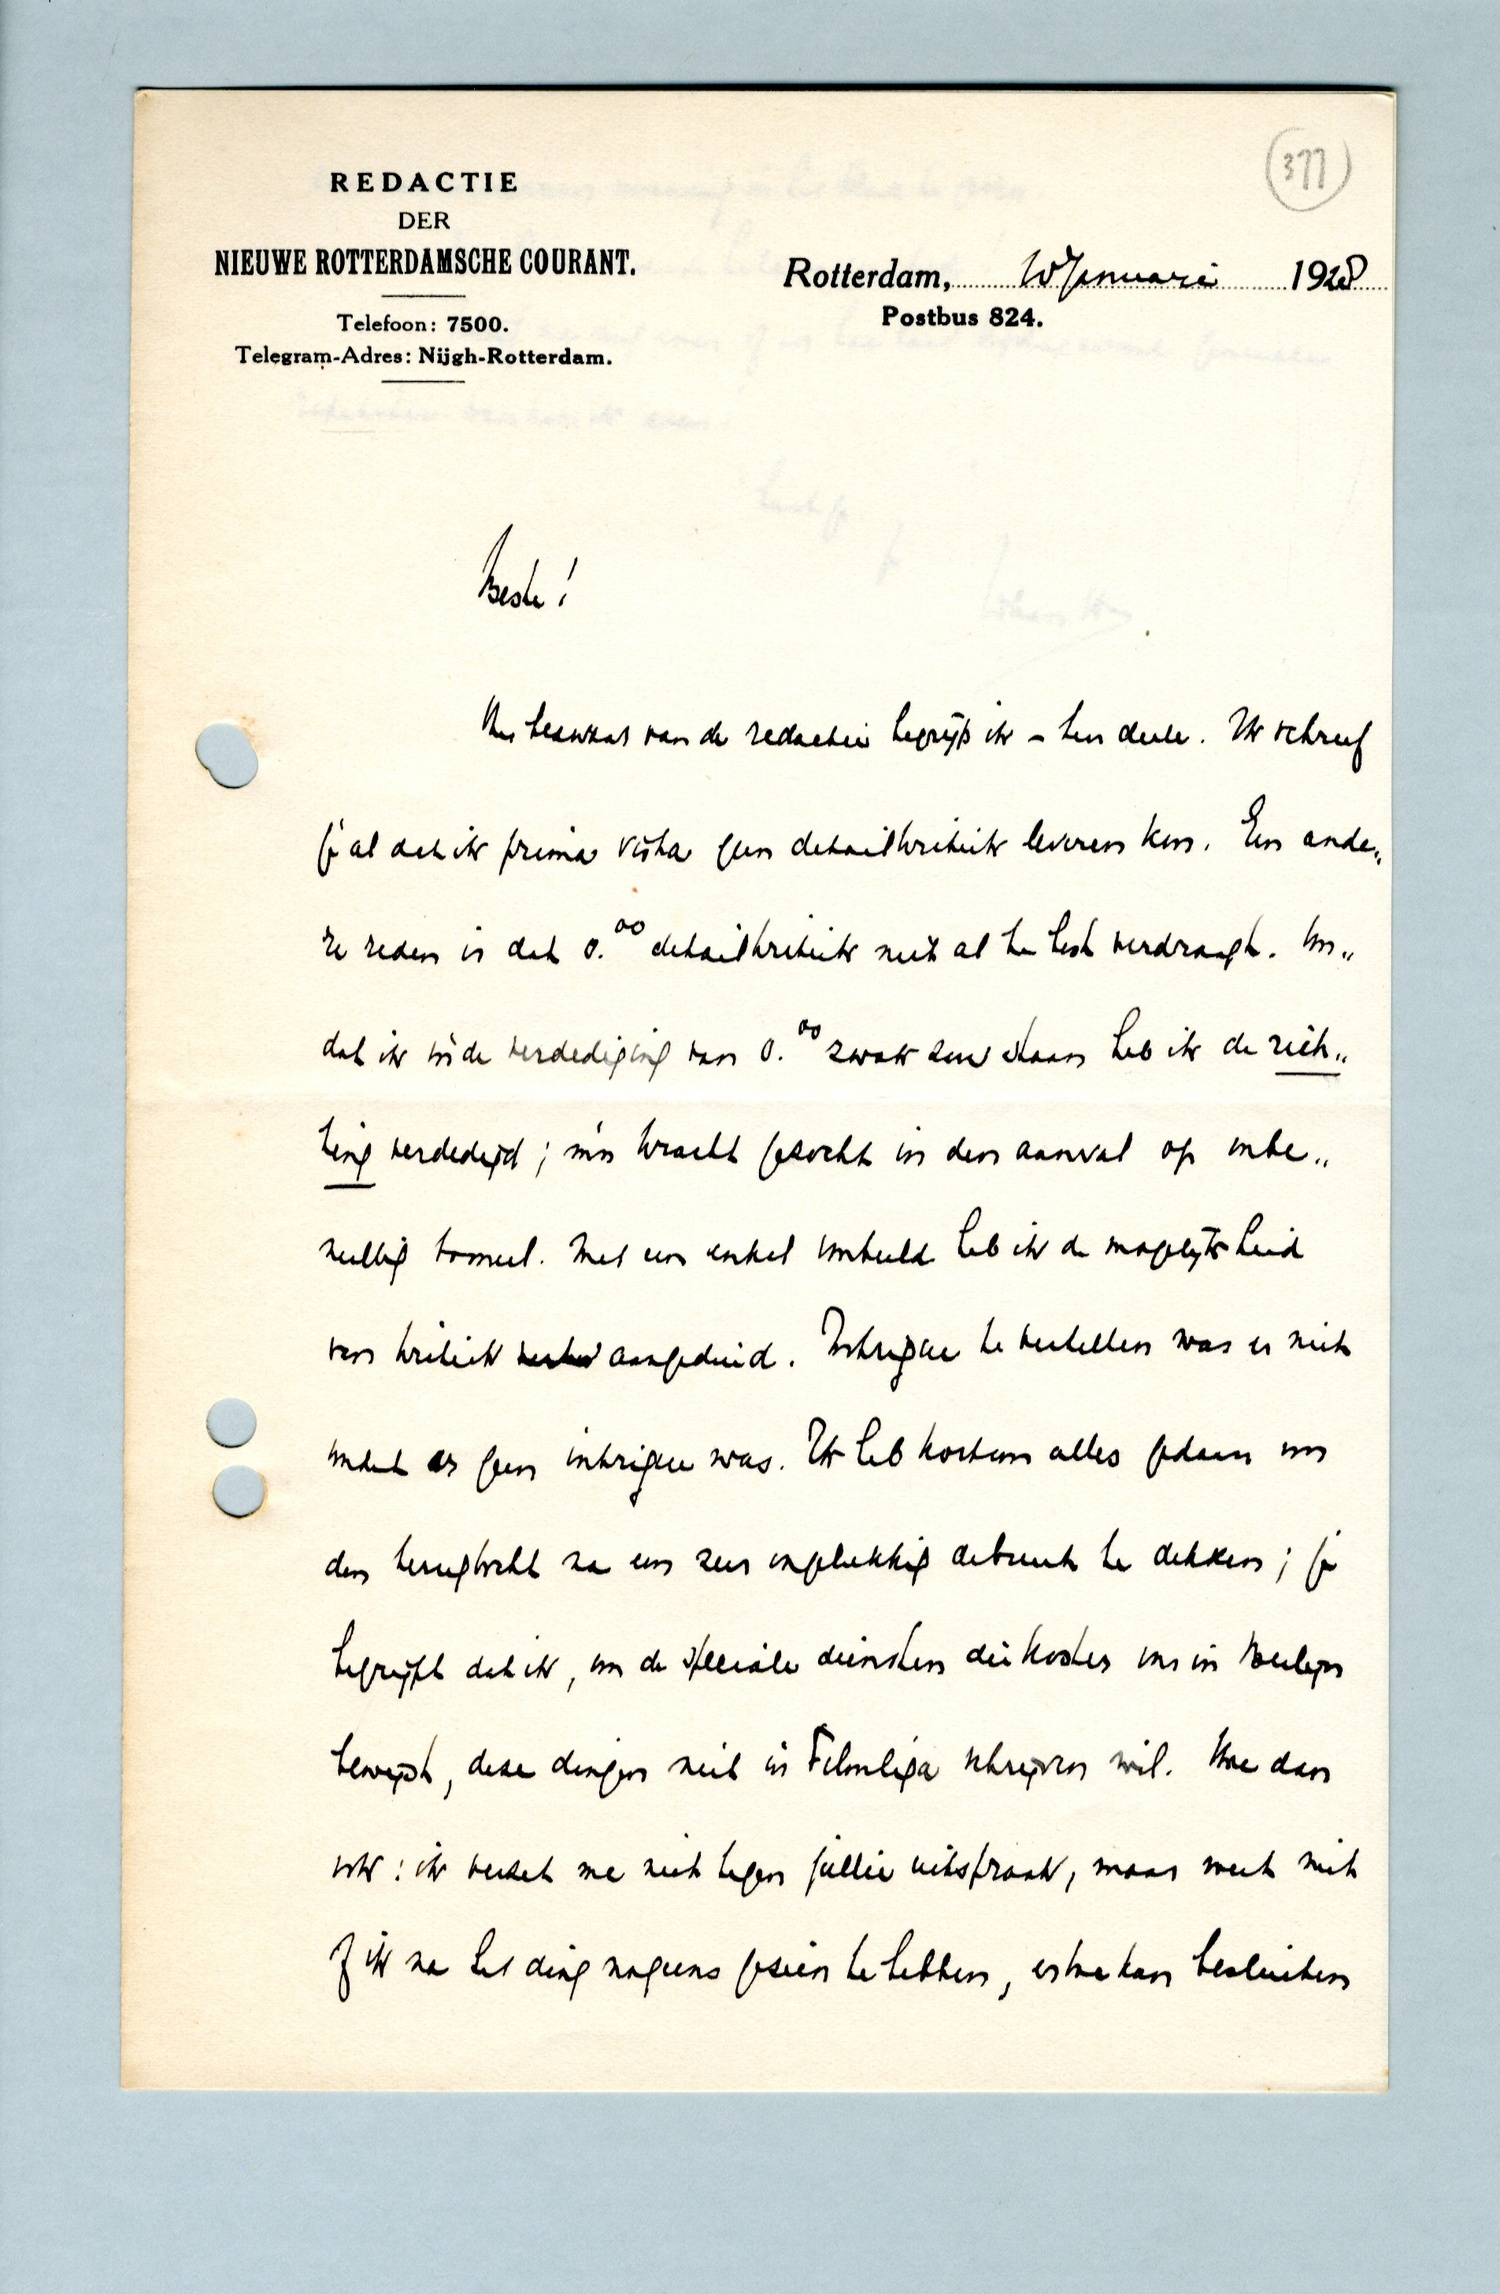 377
REDACTIE
DER
NIEUWE ROTTERDAMSCHE COURANT.
Telefoon: 7500.
Telegram-Adres: Nijgh-Rotterdam.
Rotterdam, 10 Januari 1928
Postbus 824.
Beste!
Het bezwaar van de redactie begrijp ik – ten deele. Ik schreef
je al dat ik prima vista geen detailkritiek leveren kon. Een ande„
re reden is dat O.⁰⁰ detailkritiek niet al te best verdraagt. Om„
dat ik in de verdediging van O.⁰⁰ zwak zou staan heb ik de rich„
ting verdedigd; m'n kracht gezocht in den aanval op onbe„
nullig tooneel. Met een enkel voorbeeld heb ik de mogelijkheid
van kritiek aangeduid. Intrigue te vertellen was er niet
omdat er geen intrigue was. Ik heb kortom alles gedaan om
den terugtocht na een zeer ongelukkig debuut te dekken; je
begrijpt dat ik, om de speciale diensten die Koster ons in
bewijst, deze dingen niet in Filmliga schrijven wil. Hoe dan
ook: ik verzet me niet tegen jullie uitspraak, maar weet niet
of ik na het ding nogeens gezien te hebben, ertoe kan besluiten